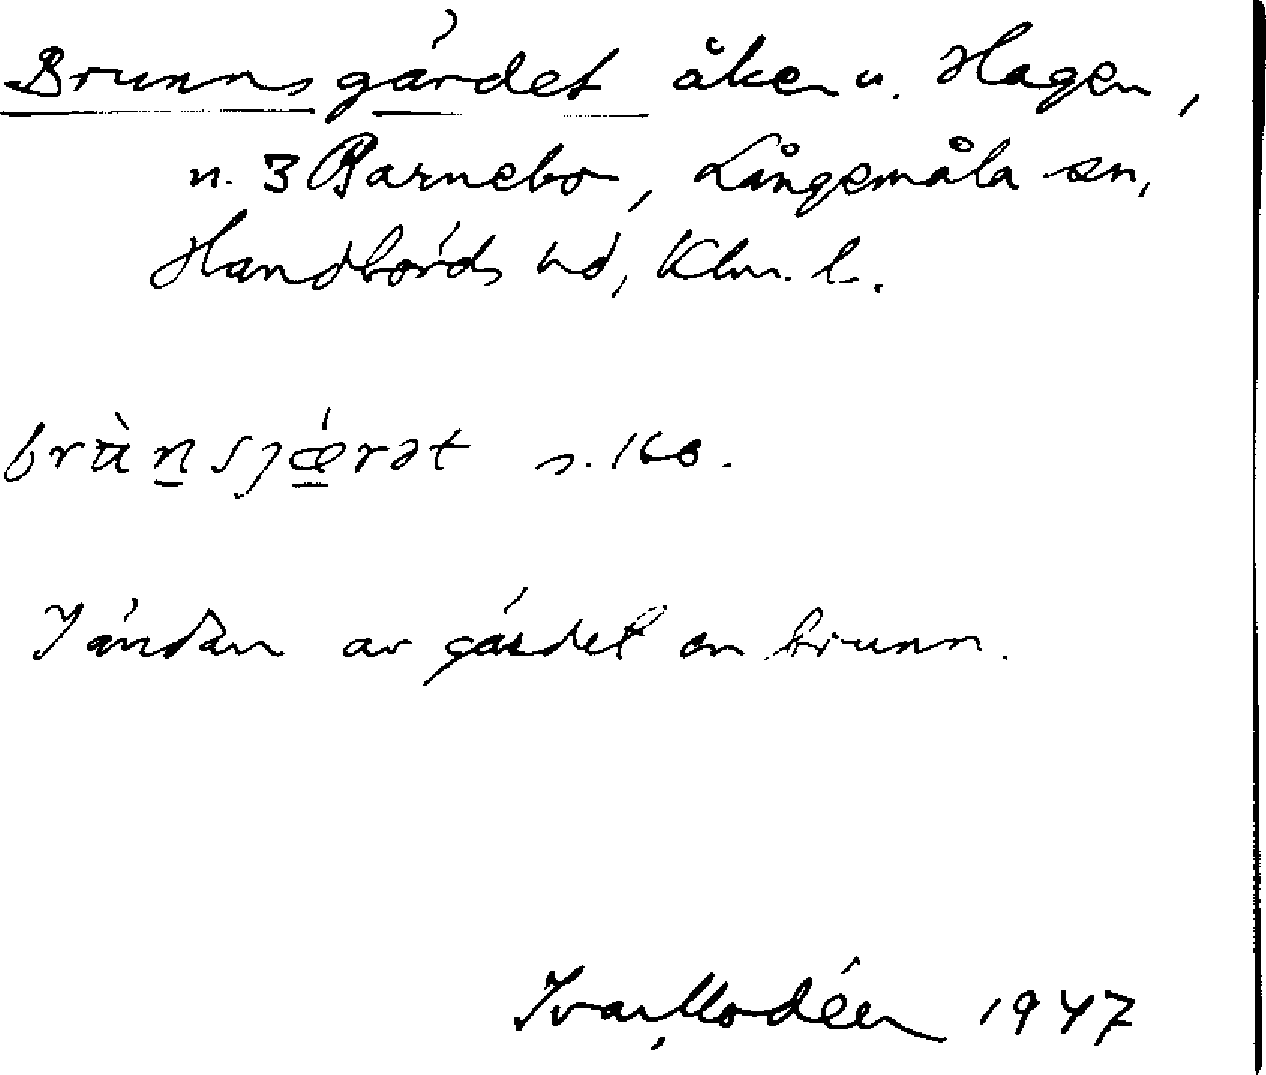 Brunnsgärdet åker u. Hagen,
n. 3 Barnebo, Långemåla sn,
Handbörds hd, Klm. l.
brùnsjǽrət s. 160.
I ändan av gärdet en brunn.
Ivar Modéer 1947